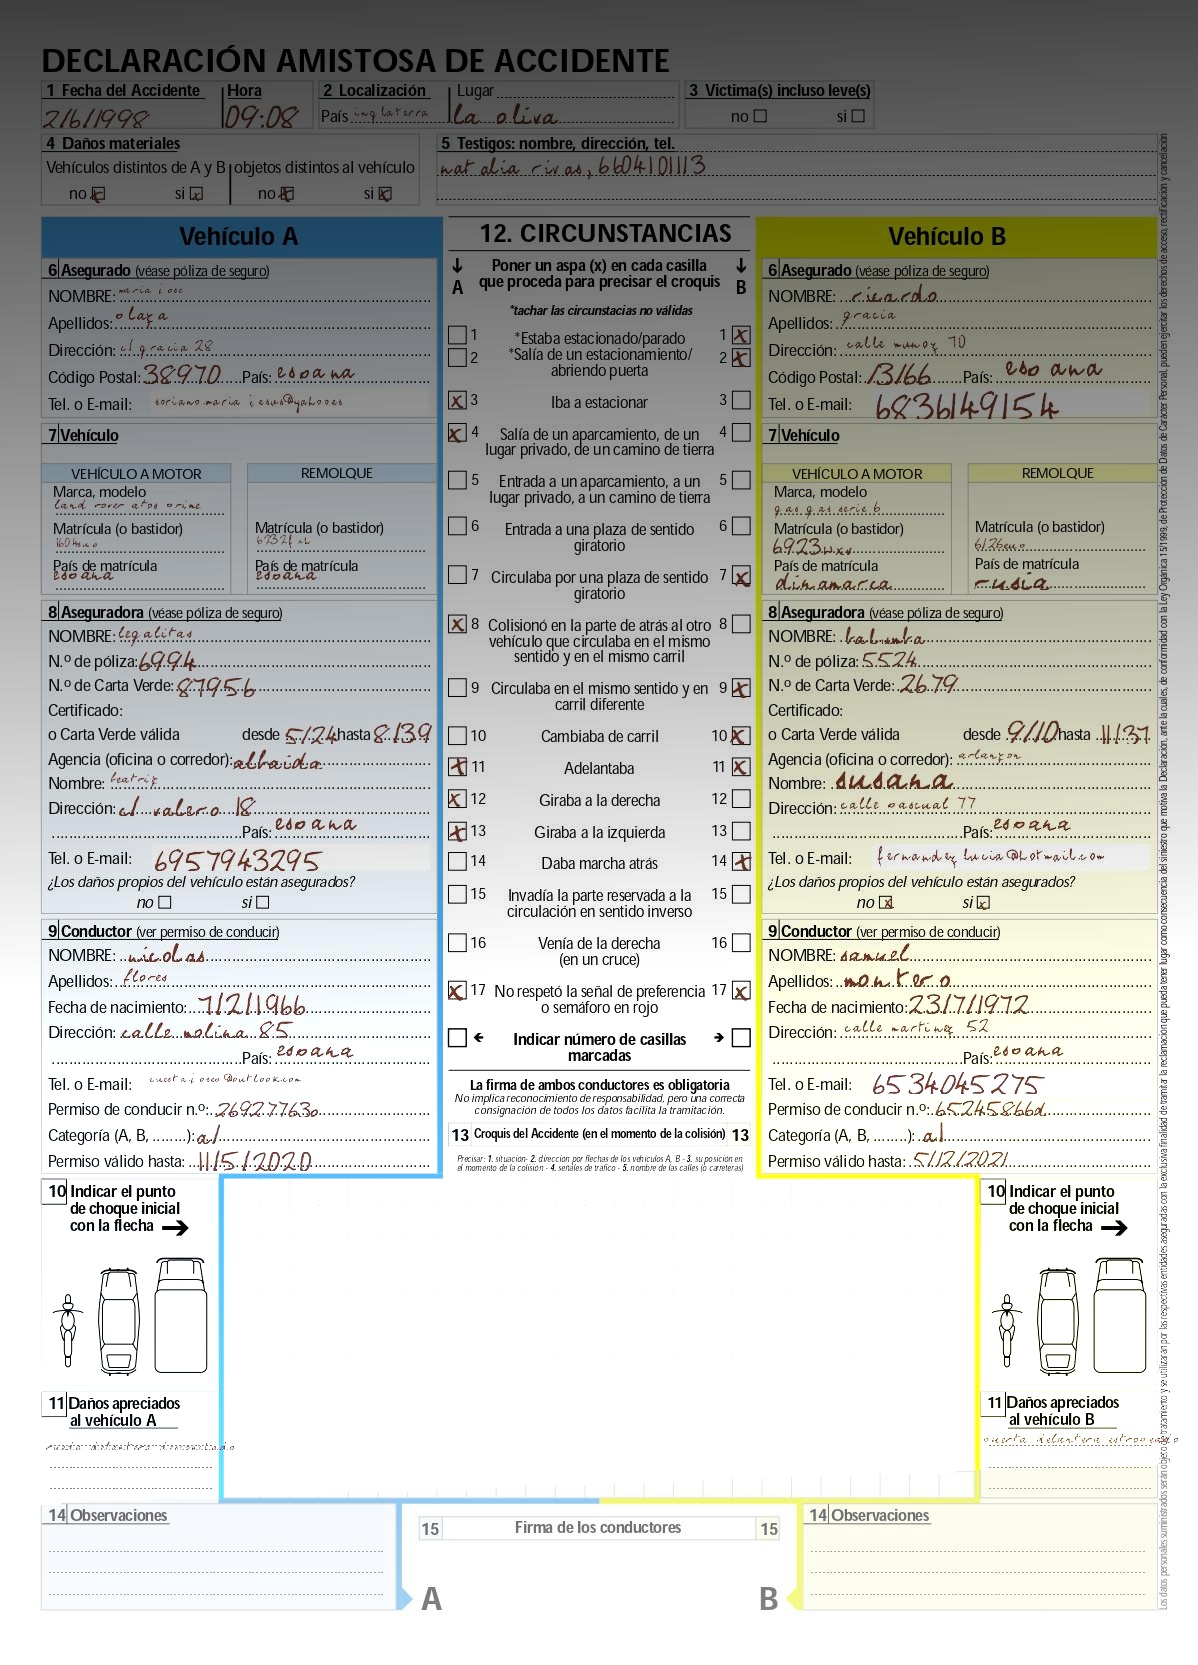 DECLARACIÓN AMISTOSA DE ACCIDENTE
1 Fecha del Accidente Hora 2 Localización Lugar 3 Victima(s) incluso leve(s)
2/6/1998 09:08 País inglaterra la oliva no si
4 Daños materiales 5 Testigos: nombre, dirección, tel.
Vehículos distintos de A y B objetos distintos al vehículo natalia rivas, 6604101113
no x si x no x si x
Vehículo A
6 Asegurado (véase póliza de seguro)
NOMBRE: maria jose
Apellidos: olaya
Dirección: cl gracia 28
Código Postal: 38970 País: espana
Tel. o E-mail: sorianomaria jesus@yahoo.es
7 Vehículo
VEHÍCULO A MOTOR REMOLQUE
Marca, modelo
land rover atos prime
Matrícula (o bastidor) Matrícula (o bastidor)
País de matrícula País de matrícula
espana espana
8 Aseguradora (véase póliza de seguro)
NOMBRE: legalitas
N.º de póliza: 6994
N.º de Carta Verde: 87956
Certificado:
o Carta Verde válida desde 5/24 hasta 8/39
Agencia (oficina o corredor): albaida
Nombre: beatriz
Dirección: cl valero 18
País: espana
Tel. o E-mail: 6957943295
¿Los daños propios del vehículo están asegurados?
no si
9 Conductor (ver permiso de conducir)
NOMBRE: nicolas
Apellidos: flores
Fecha de nacimiento: 7/2/1966
Dirección: calle molina 85
País: espana
Tel. o E-mail: cuestajoses@outlook.com
Permiso de conducir n.º: 26927763p
Categoría (A, B, ........): a1
Permiso válido hasta: 11/5/2020
12. CIRCUNSTANCIAS
Poner un aspa (x) en cada casilla
A que proceda para precisar el croquis B
*tachar las circunstacias no válidas
1 *Estaba estacionado/parado 1 x
2 *Salía de un estacionamiento/ 2 x
abriendo puerta
x 3 Iba a estacionar 3
x 4 Salía de un aparcamiento, de un 4
lugar privado, de un camino de tierra
5 Entrada a un aparcamiento, a un 5
lugar privado, a un camino de tierra
6 Entrada a una plaza de sentido 6
giratorio
7 Circulaba por una plaza de sentido 7 x
giratorio
x 8 Colisionó en la parte de atrás al otro 8
vehículo que circulaba en el mismo
sentido y en el mismo carril
9 Circulaba en el mismo sentido y en 9 x
carril diferente
10 Cambiaba de carril 10 x
x 11 Adelantaba 11 x
x 12 Giraba a la derecha 12
x 13 Giraba a la izquierda 13
14 Daba marcha atrás 14 x
15 Invadía la parte reservada a la 15
circulación en sentido inverso
16 Venía de la derecha 16
(en un cruce)
x 17 No respetó la señal de preferencia 17 x
o semáforo en rojo
Indicar número de casillas
marcadas
La firma de ambos conductores es obligatoria
No implica reconocimiento de responsabilidad, pero una correcta
consignación de todos los datos facilita la tramitación.
13 Croquis del Accidente (en el momento de la colisión) 13
Precisar: 1. situación- 2. dirección por flechas de los vehículos A, B - 3. su posición en
el momento de la colisión - 4. señales de tráfico - 5. nombre de las calles (o carreteras)
Vehículo B
6 Asegurado (véase póliza de seguro)
NOMBRE: ricardo
Apellidos: gracia
Dirección: calle munoz 10
Código Postal: 13166 País: espana
Tel. o E-mail: 6836149154
7 Vehículo
VEHÍCULO A MOTOR REMOLQUE
Marca, modelo
gas gas serie 6
Matrícula (o bastidor) Matrícula (o bastidor)
País de matrícula País de matrícula
dinamarca rusia
8 Aseguradora (véase póliza de seguro)
NOMBRE: balumba
N.º de póliza: 5524
N.º de Carta Verde: 2679
Certificado:
o Carta Verde válida desde 9/10 hasta 11/37
Agencia (oficina o corredor): arlanzon
Nombre: susana
Dirección: calle pascual 77
País: espana
Tel. o E-mail: fernandez lucia@hotmail.com
¿Los daños propios del vehículo están asegurados?
no x si x
9 Conductor (ver permiso de conducir)
NOMBRE: samuel
Apellidos: montero
Fecha de nacimiento: 23/7/1972
Dirección: calle martinez 52
País: espana
Tel. o E-mail: 6534045275
Permiso de conducir n.º: 65245866d
Categoría (A, B, ........): a1
Permiso válido hasta: 5/12/2021
10 Indicar el punto
de choque inicial
con la flecha
11 Daños apreciados
al vehículo A
rueda delantera desmontada
10 Indicar el punto
de choque inicial
con la flecha
11 Daños apreciados
al vehículo B
puerta delantera estropeado
14 Observaciones
15 Firma de los conductores 15
A B
14 Observaciones
Los datos personales suministrados serán objeto de tratamiento y se utilizaran por las respectivas entidades aseguradas con la exclusiva finalidad de tramitar la reclamación que pueda tener lugar como consecuencia del siniestro que motiva la Declaración, ante la cuales, de conformidad con la Ley Orgánica 15/1999, de Protección de Datos de Carácter Personal, pueden ejercitar los derechos de acceso, rectificación y cancelación